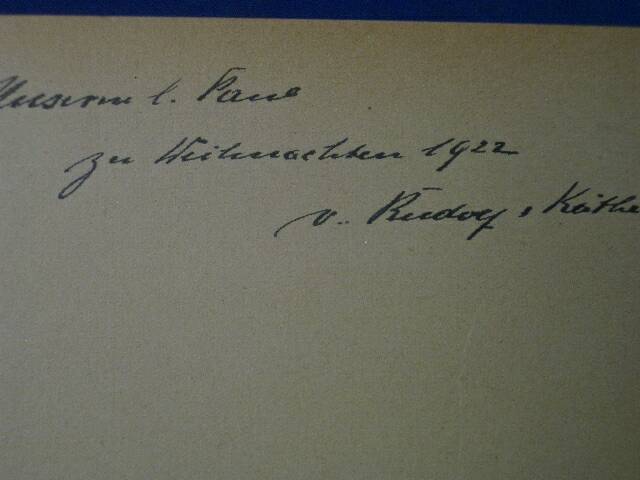 Unserm l. Paul
zu Weihnachten 1922
v. Rudolf & Käthe